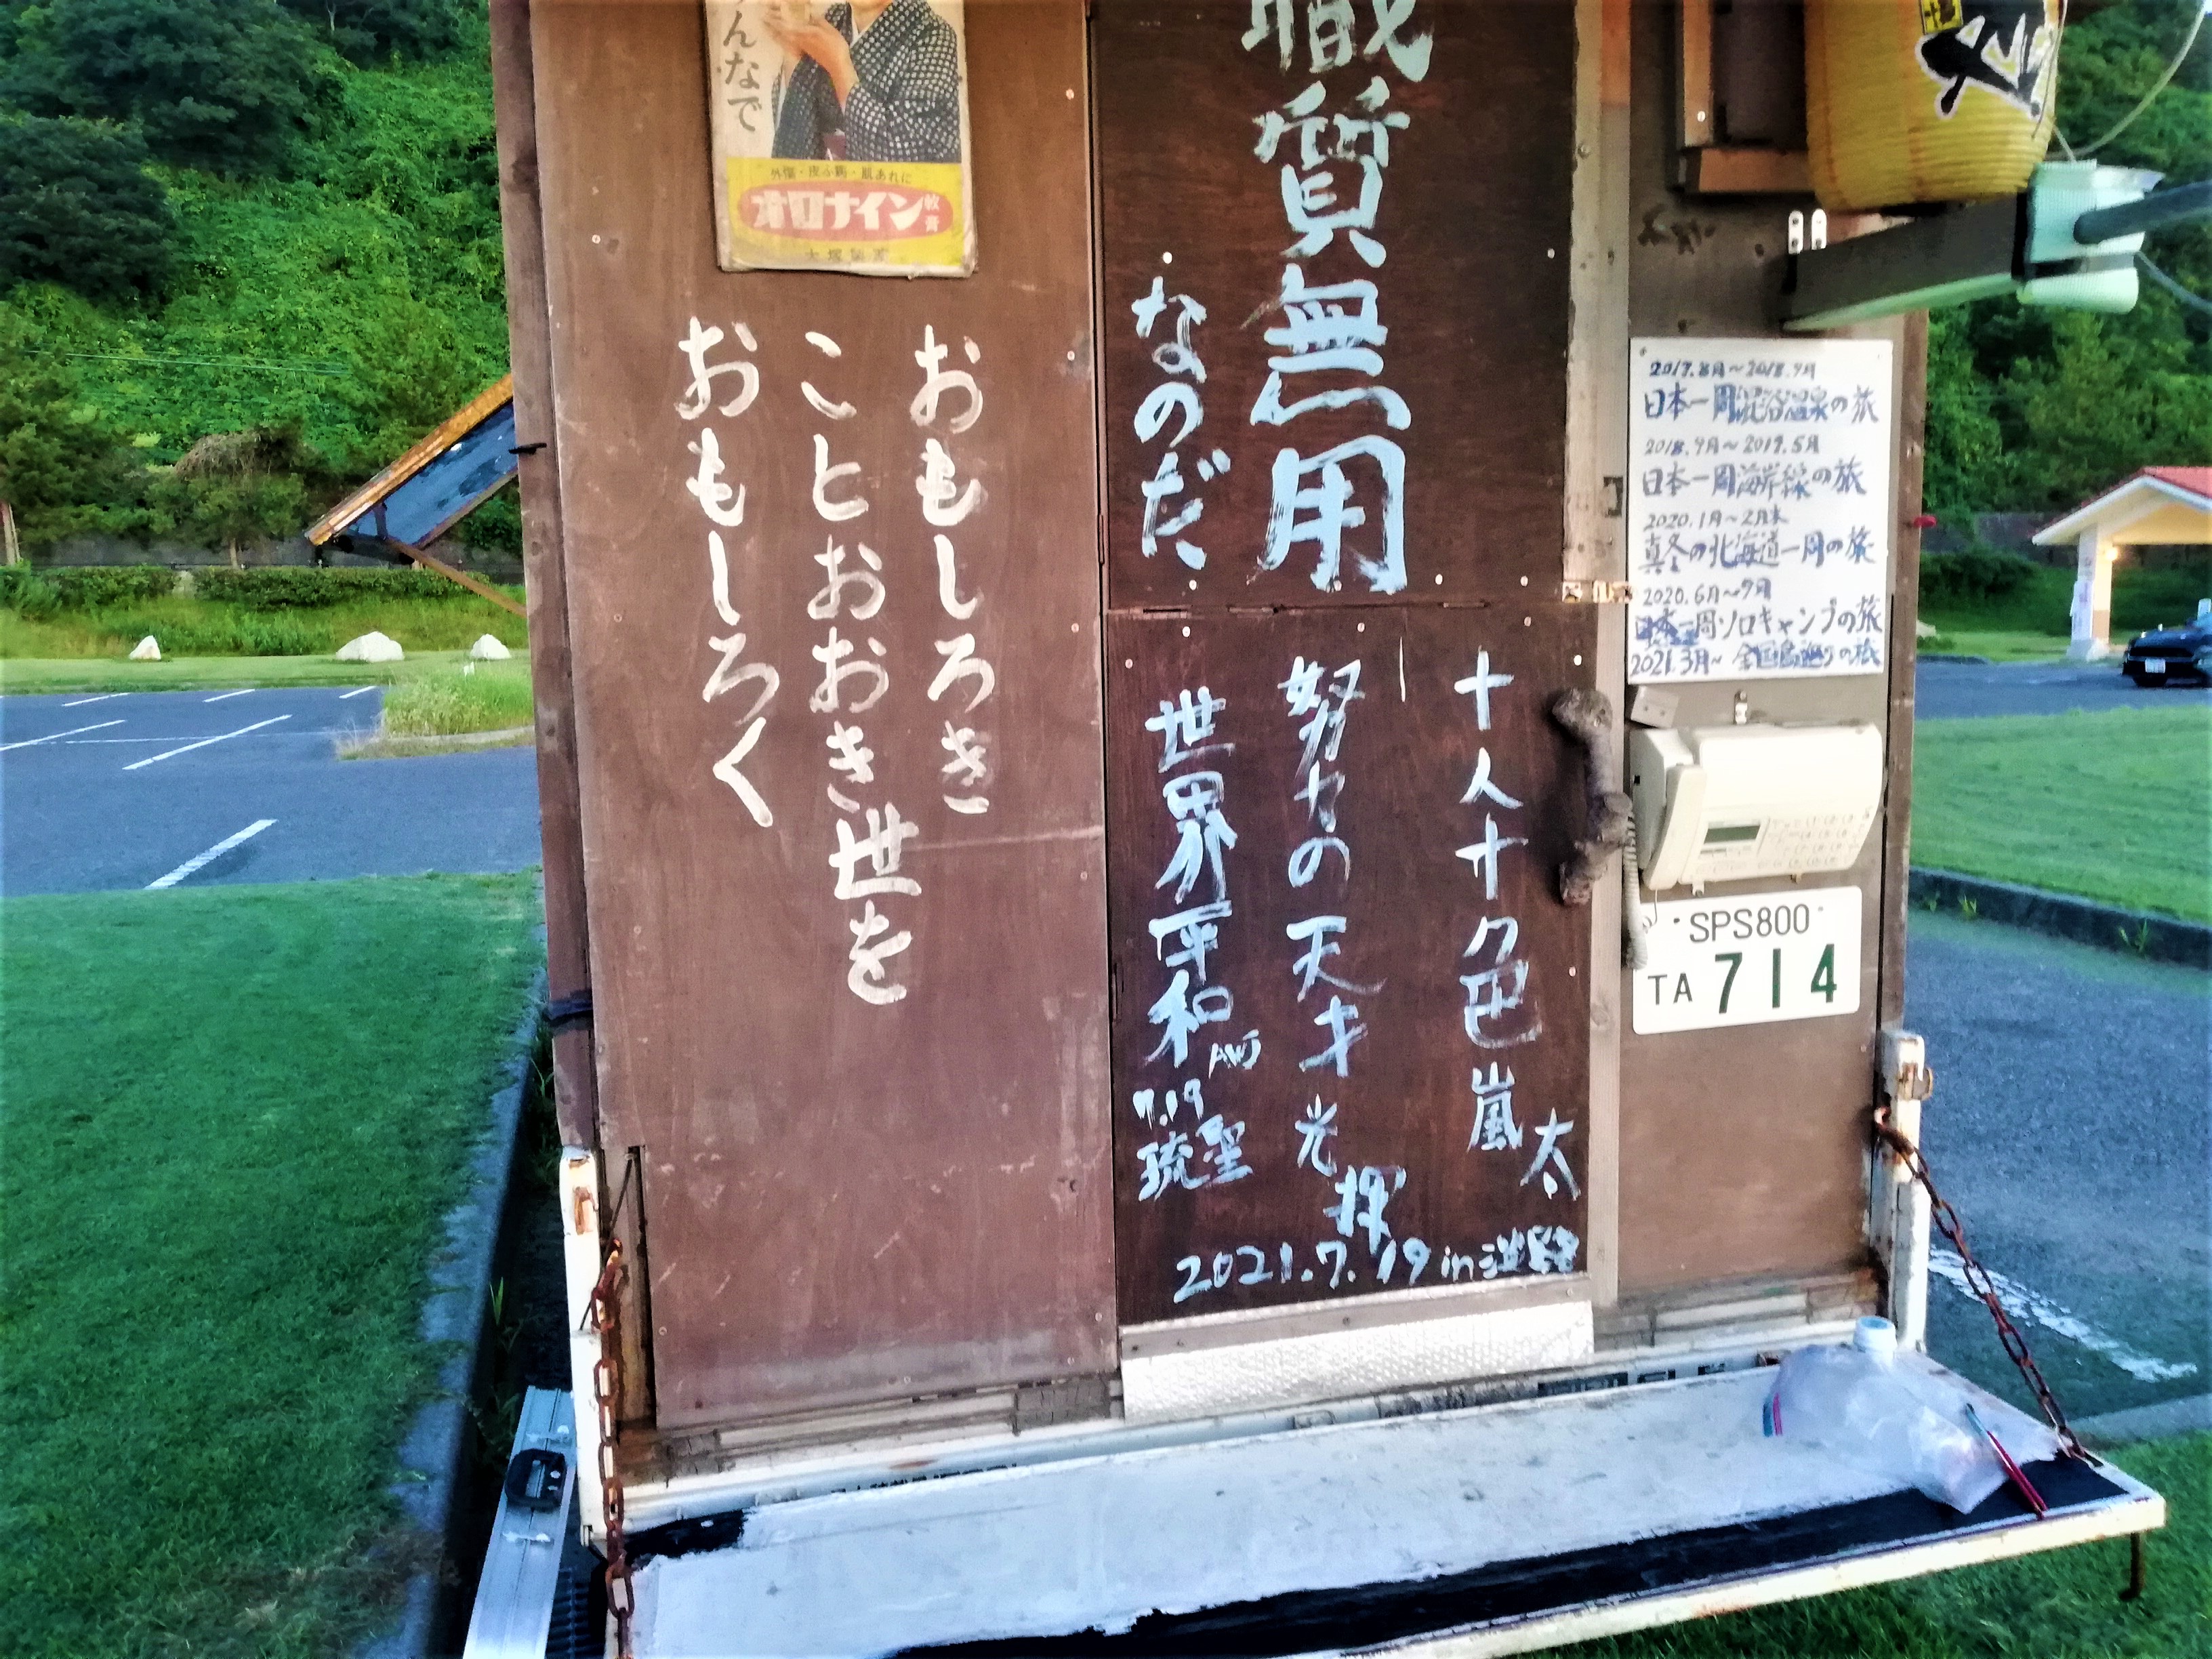 んなで
外傷・皮ふ病・肌あれに
オロナイン軟膏
大塚製薬
おもしろき
ことおおき世を
おもしろく
職質無用
なのだ
十人十色 嵐太
努力の天才 光輝
世界平和
7.19
琉聖
2021.7.19 in 淡路
2017.8月~2018.9月
日本一周混浴温泉の旅
2018.9月~2019.5月
日本一周海岸線の旅
2020.1月~2月末
真冬の北海道一周の旅
2020.6月~9月
日本一周ソロキャンプの旅
2021.3月~全国島巡りの旅
SPS800
TA 714